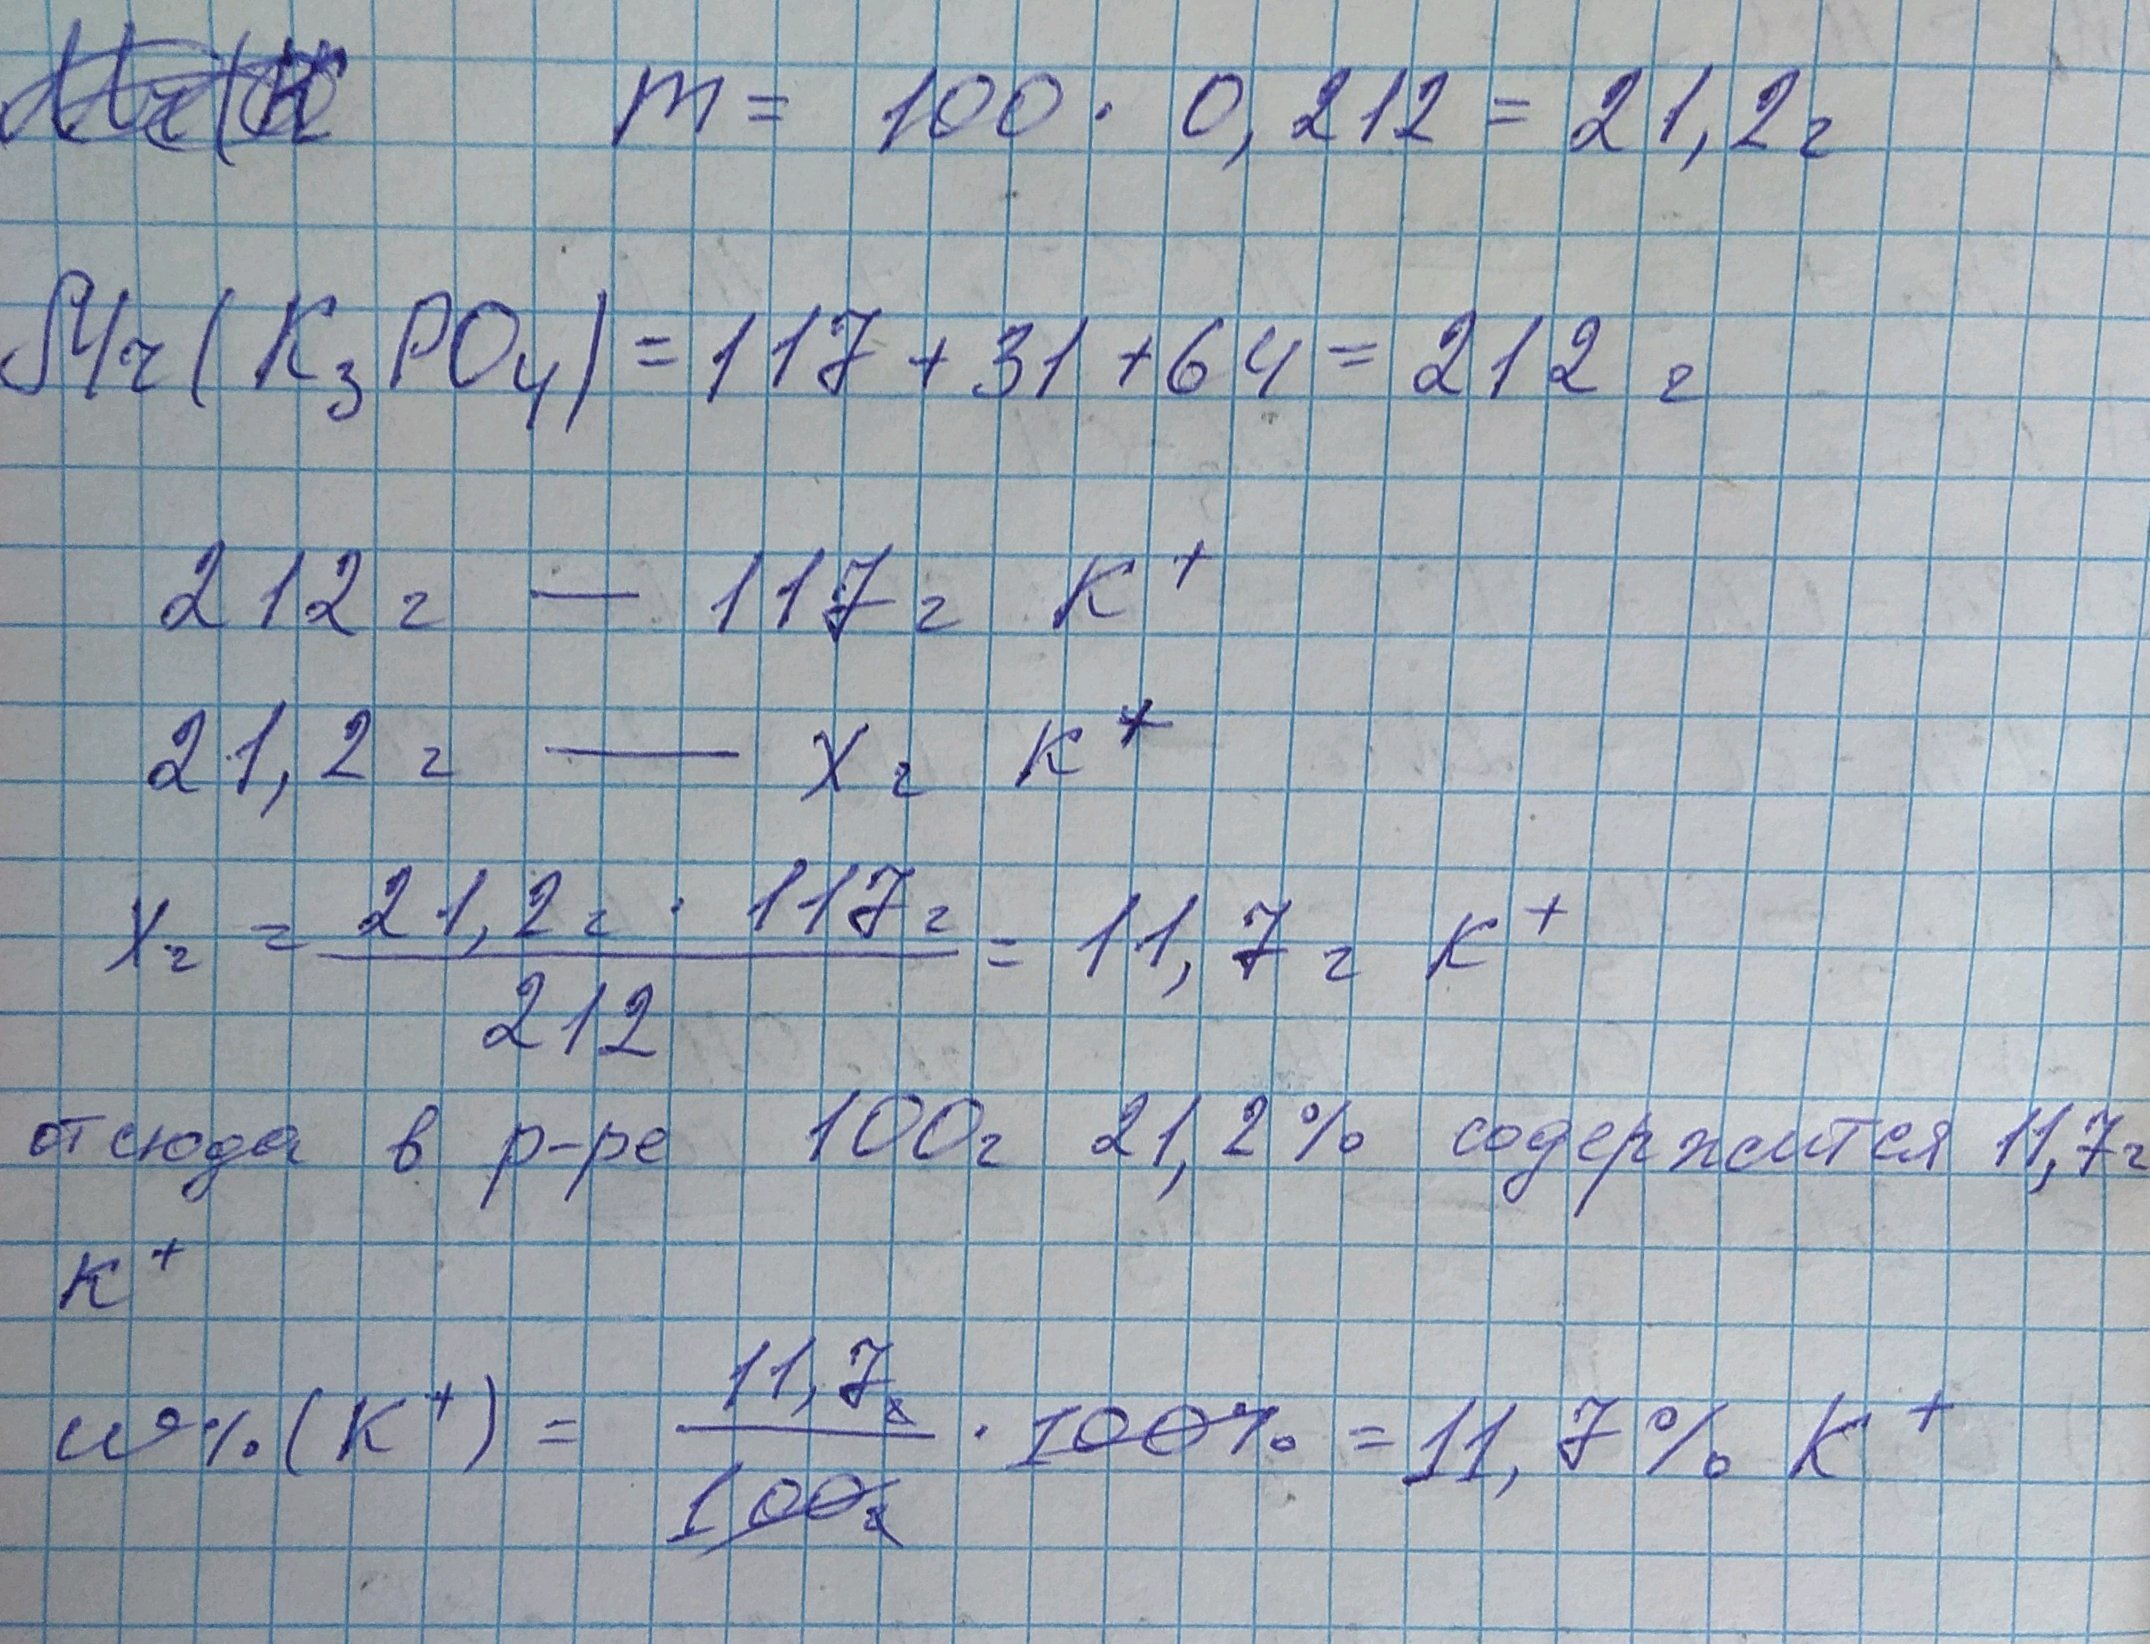 m = 100 · 0,212 = 21,2 г
Mr(K₃PO₄) = 117 + 31 + 64 = 212 г
212 г — 117 г K⁺
21,2 г — x г K⁺
x г = (21,2 г · 117 г) / 212 = 11,7 г K⁺
отсюда в р-ре 100г 21,2% содержится 11,7г
K⁺
ω%(K⁺) = 11,7г / 100г · 100% = 11,7% K⁺